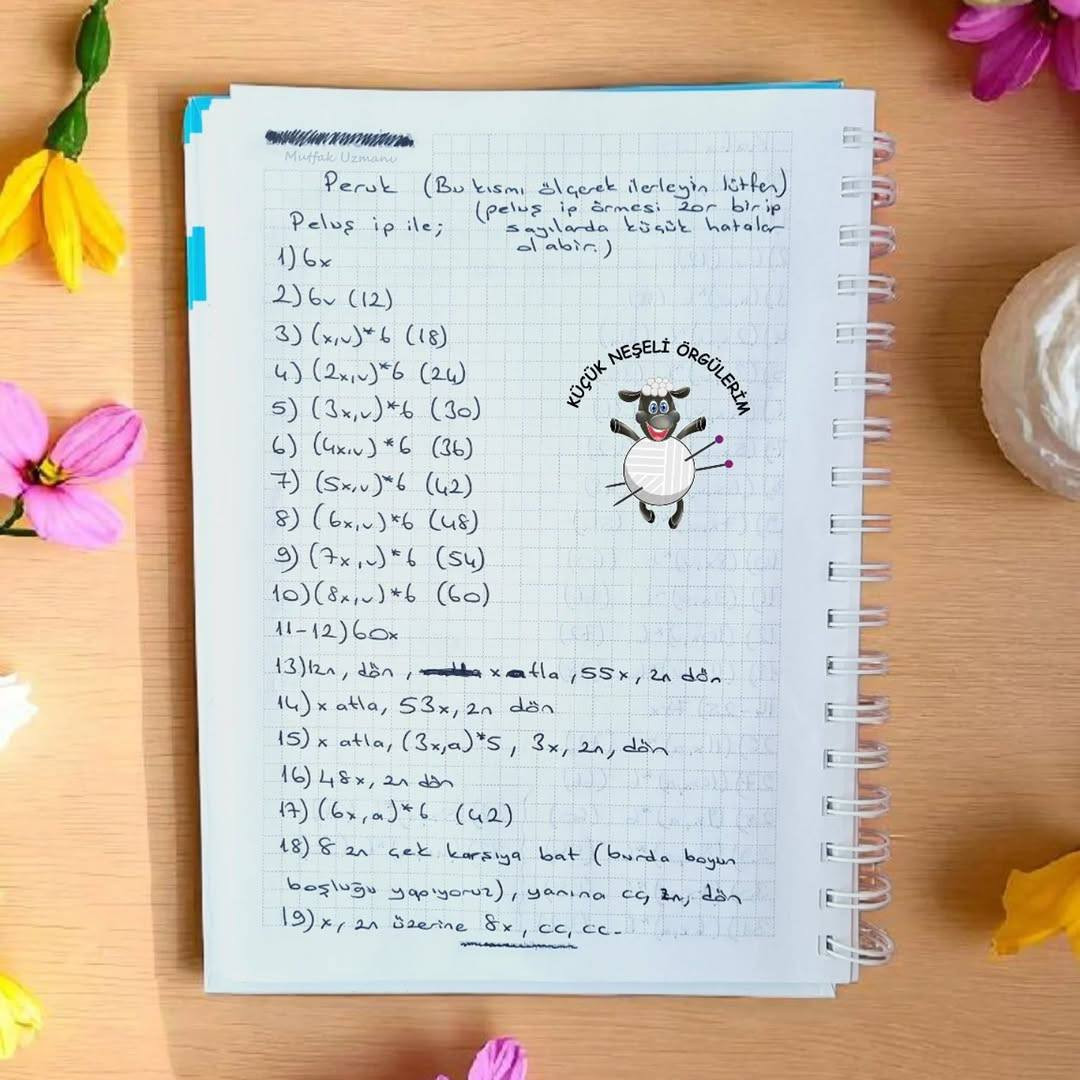 Mutfak Uzmanı
Peruk (Bu kısmı ölçerek ilerleyin lütfen)
(peluş ip örmesi zor bir ip
Peluş ip ile; sayılarda küçük hatalar
olabir.)
1) 6x
2) 6v (12)
3) (x,v)*6 (18)
4) (2x,v)*6 (24)
5) (3x,v)*6 (30)
6) (4x,v)*6 (36)
7) (5x,v)*6 (42)
8) (6x,v)*6 (48)
9) (7x,v)*6 (54)
10) (8x,v)*6 (60)
11-12) 60x
13) 12n, dön, x atla, 55x, zn dön
14) x atla, 53x, zn dön
15) x atla, (3x,a)*5, 3x, zn, dön
16) 48x, zn dön
17) (6x,a)*6 (42)
18) 8 zn çek karşıya bat (burda boyun
boşluğu yapıyoruz), yanına cc, zn, dön
19) x, zn üzerine 8x, cc, cc-
KÜÇÜK NEŞELİ ÖRGÜLERİM